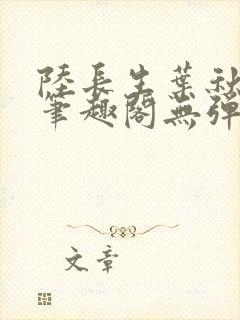 陸長生葉秋
筆趣閣無彈
文章